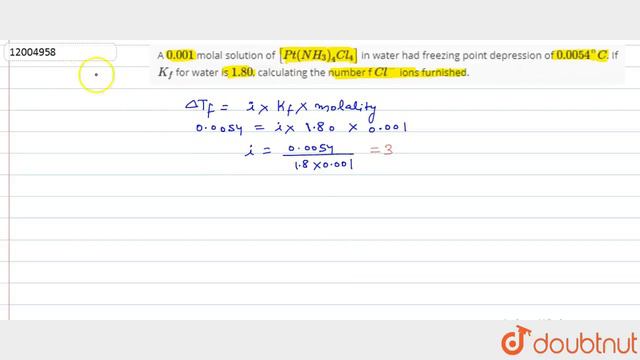 12004958
A 0.001 molal solution of [Pt(NH₃)₄Cl₄] in water had freezing point depression of 0.0054°C. If
K_f for water is 1.80, calculating the number f Cl⁻ ions furnished.
ΔT_f = i × K_f × molality
0.0054 = i × 1.80 × 0.001
i = 0.0054 / 1.8 × 0.001 = 3
doubtnut